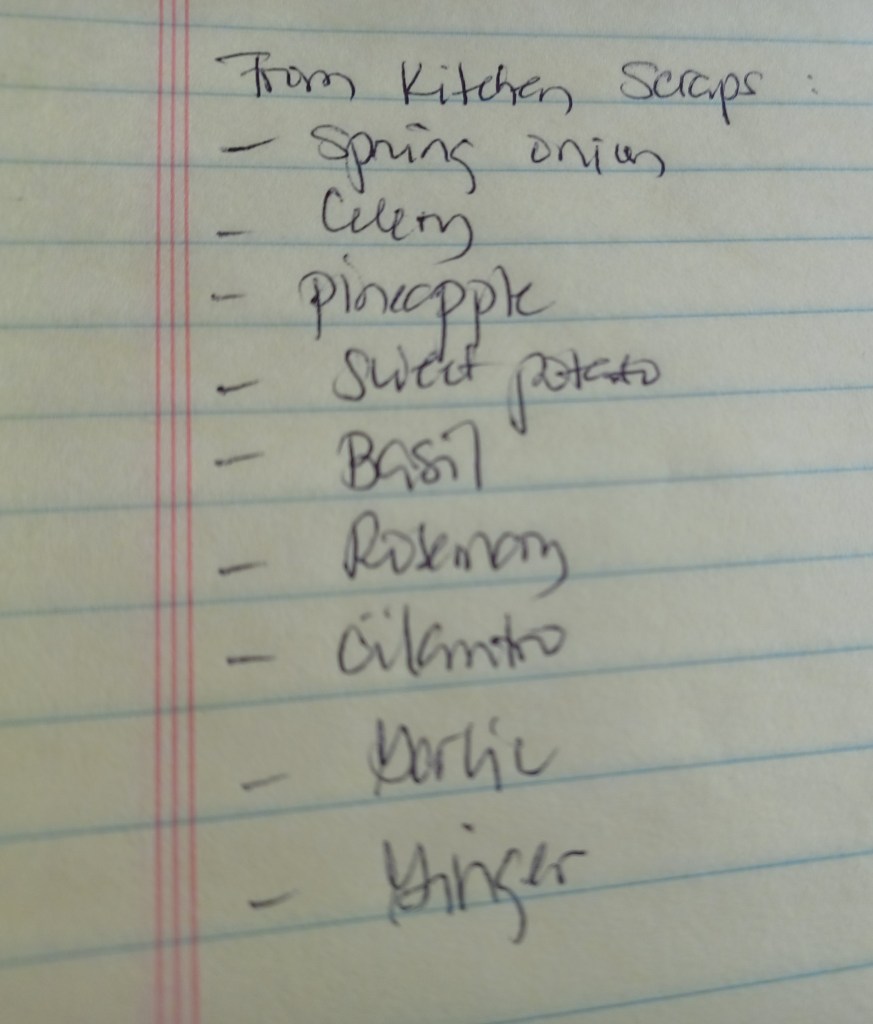 From Kitchen Scraps :
- Spring onion
- Celery
- Pineapple
- Sweet potato
- Basil
- Rosemary
- Cilantro
- Garlic
- Ginger